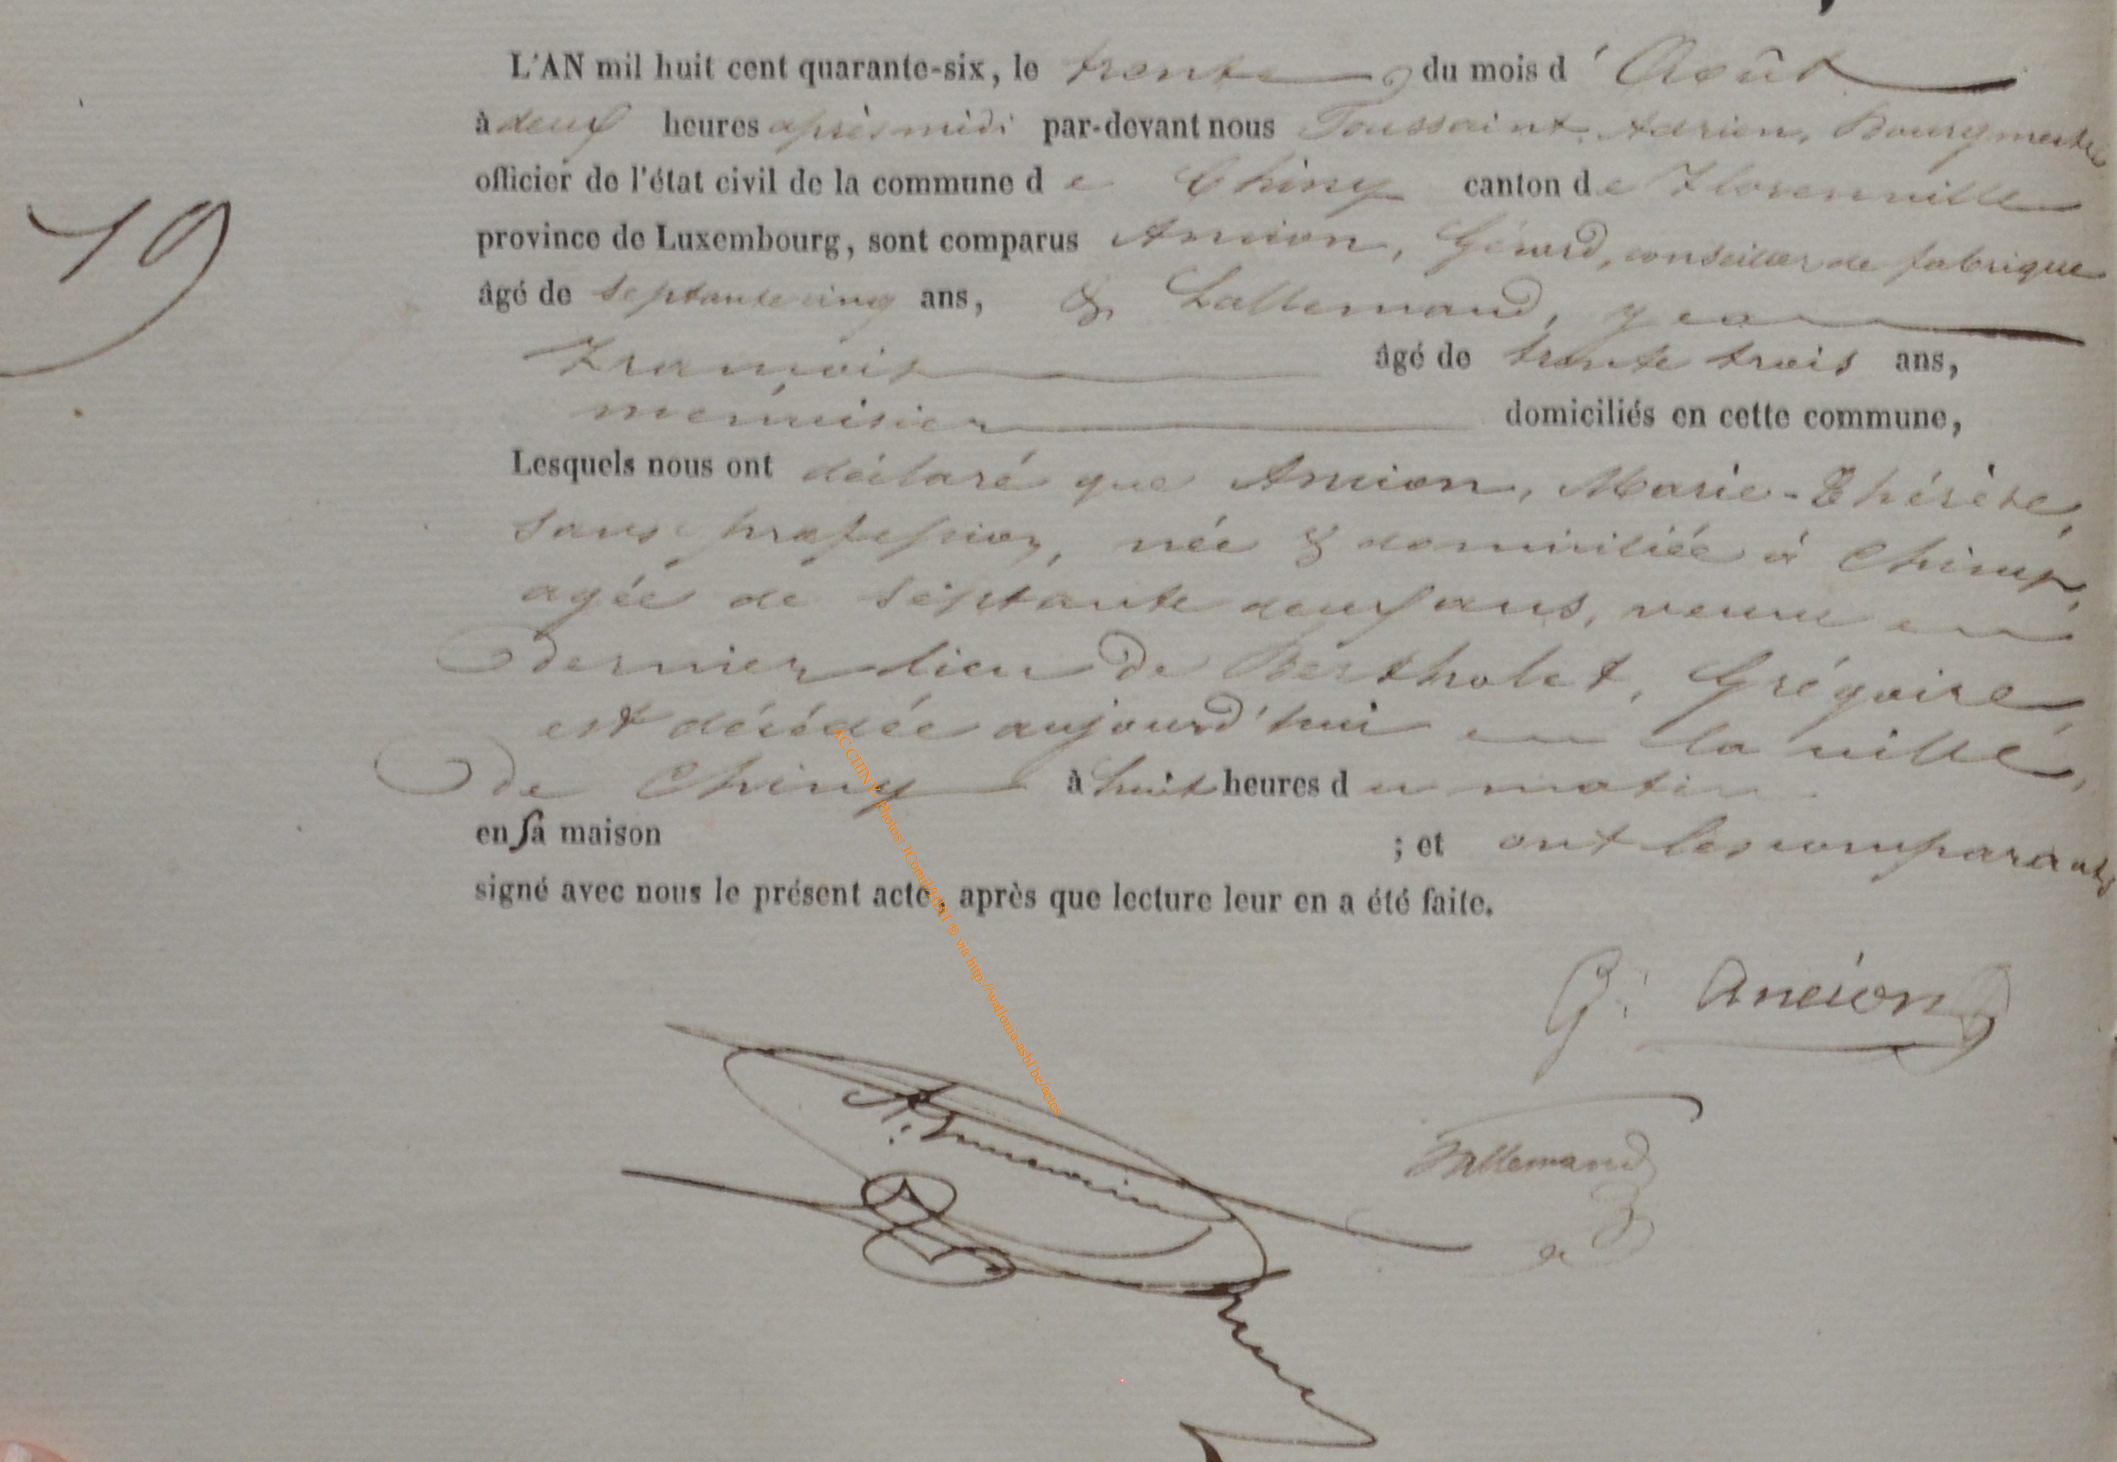 L'AN mil huit cent quarante-six, le trente du mois d'Août
à deux heures après midi par-devant nous Toussaint, Adrien, Bourgmestre
officier de l'état civil de la commune de Chiny canton de Florenville
province de Luxembourg, sont comparus Ancion, Gérard, conseiller de fabrique
âgé de septante cinq ans, & Lallemand, Jean
François âgé de trente trois ans,
menuisier domiciliés en cette commune,
19
Lesquels nous ont déclaré que Ancion, Marie-Thérèse,
sans profession, née & domiciliée à Chiny,
agée de septante deux ans, veuve en
dernier lieu de Bertholet, Grégoire,
est décédée aujourd'hui en la ville,
de Chiny à huit heures du matin
en sa maison ; et ont les comparants
signé avec nous le présent acte, après que lecture leur en a été faite.
G: Ancion
Lallemand
A: Toussaint
AC CHINY Photos JComil ADAT © via http://wallonia-asbl.be/actes